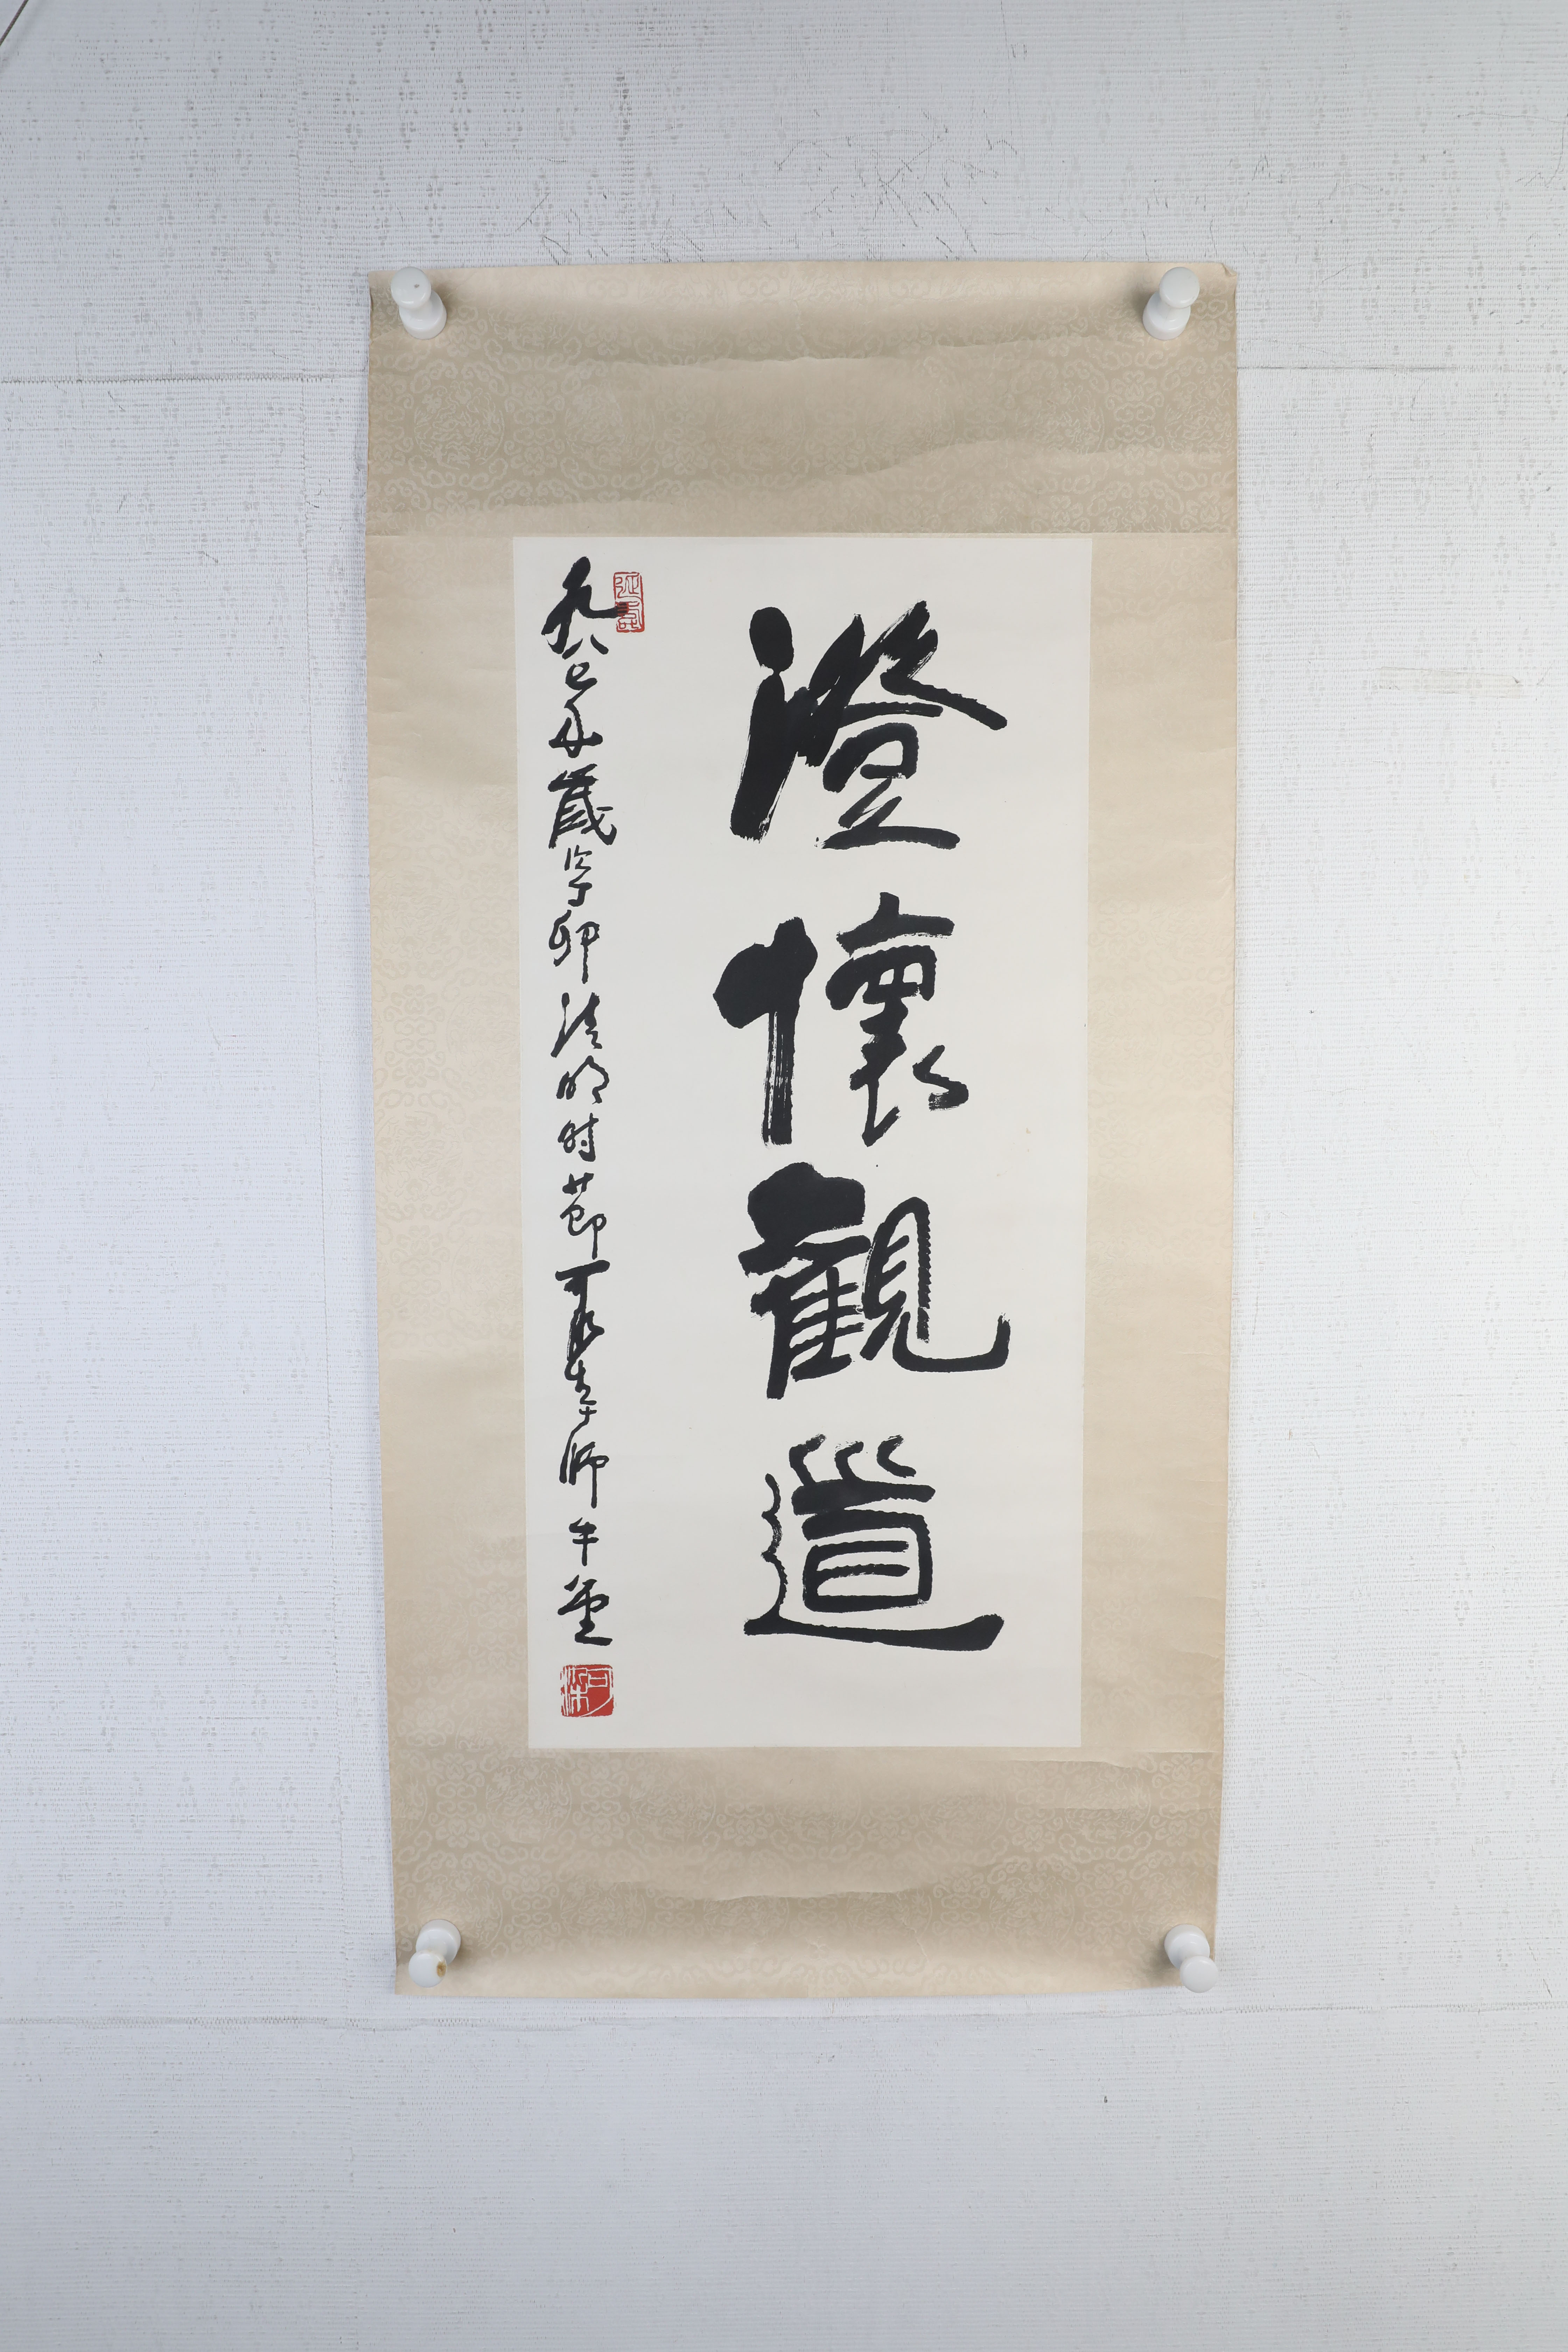 澄懷觀道
一九八七年歲次丁卯清明时節可染師牛堂
可染